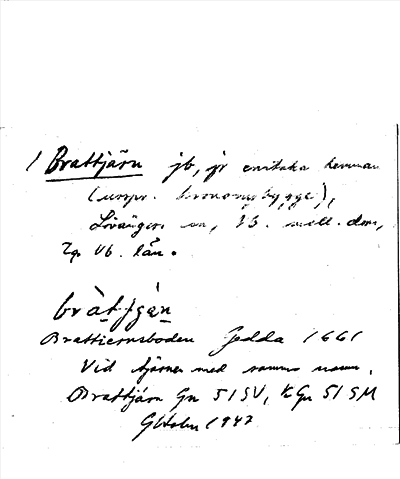 1 Brattjärn jb, jr enstaka hemman
(urspr. kronomybygge),
Lövånger sn, Vb. mell. dom,
Vb. län.
bràtjæ̀n
Brattiernsboden Jordda 1661
Vid tjärnen med samma namn.
Brattjärn Gn 51 SV, K Gn 51 SM
GHolm 1947